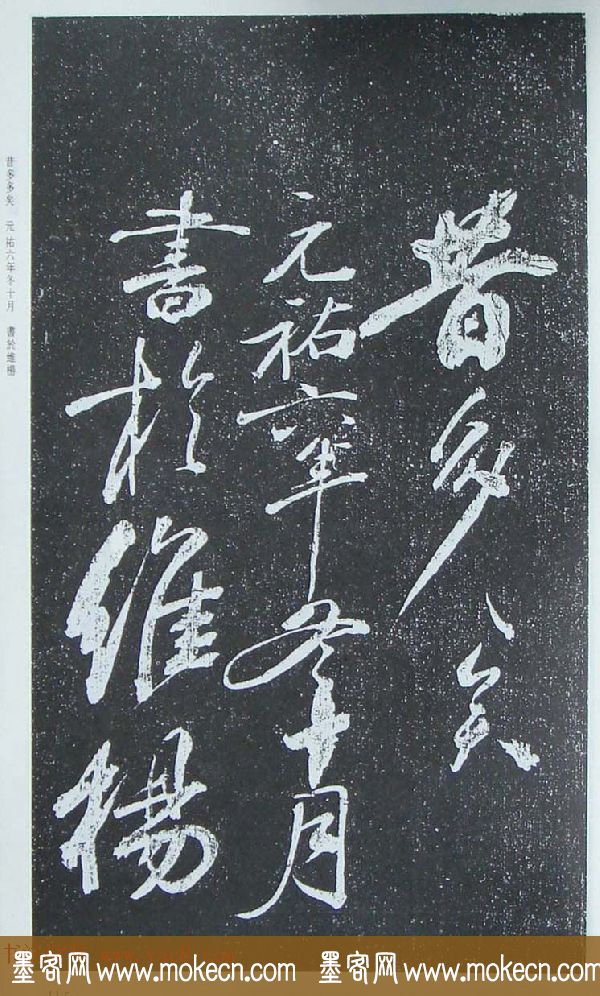 昔多〻矣
元祐六年冬十月
書於維楊
昔多多矣 元祐六年冬十月 書於維楊
墨客网 www.mokecn.com 墨客网 www.mokecn.com